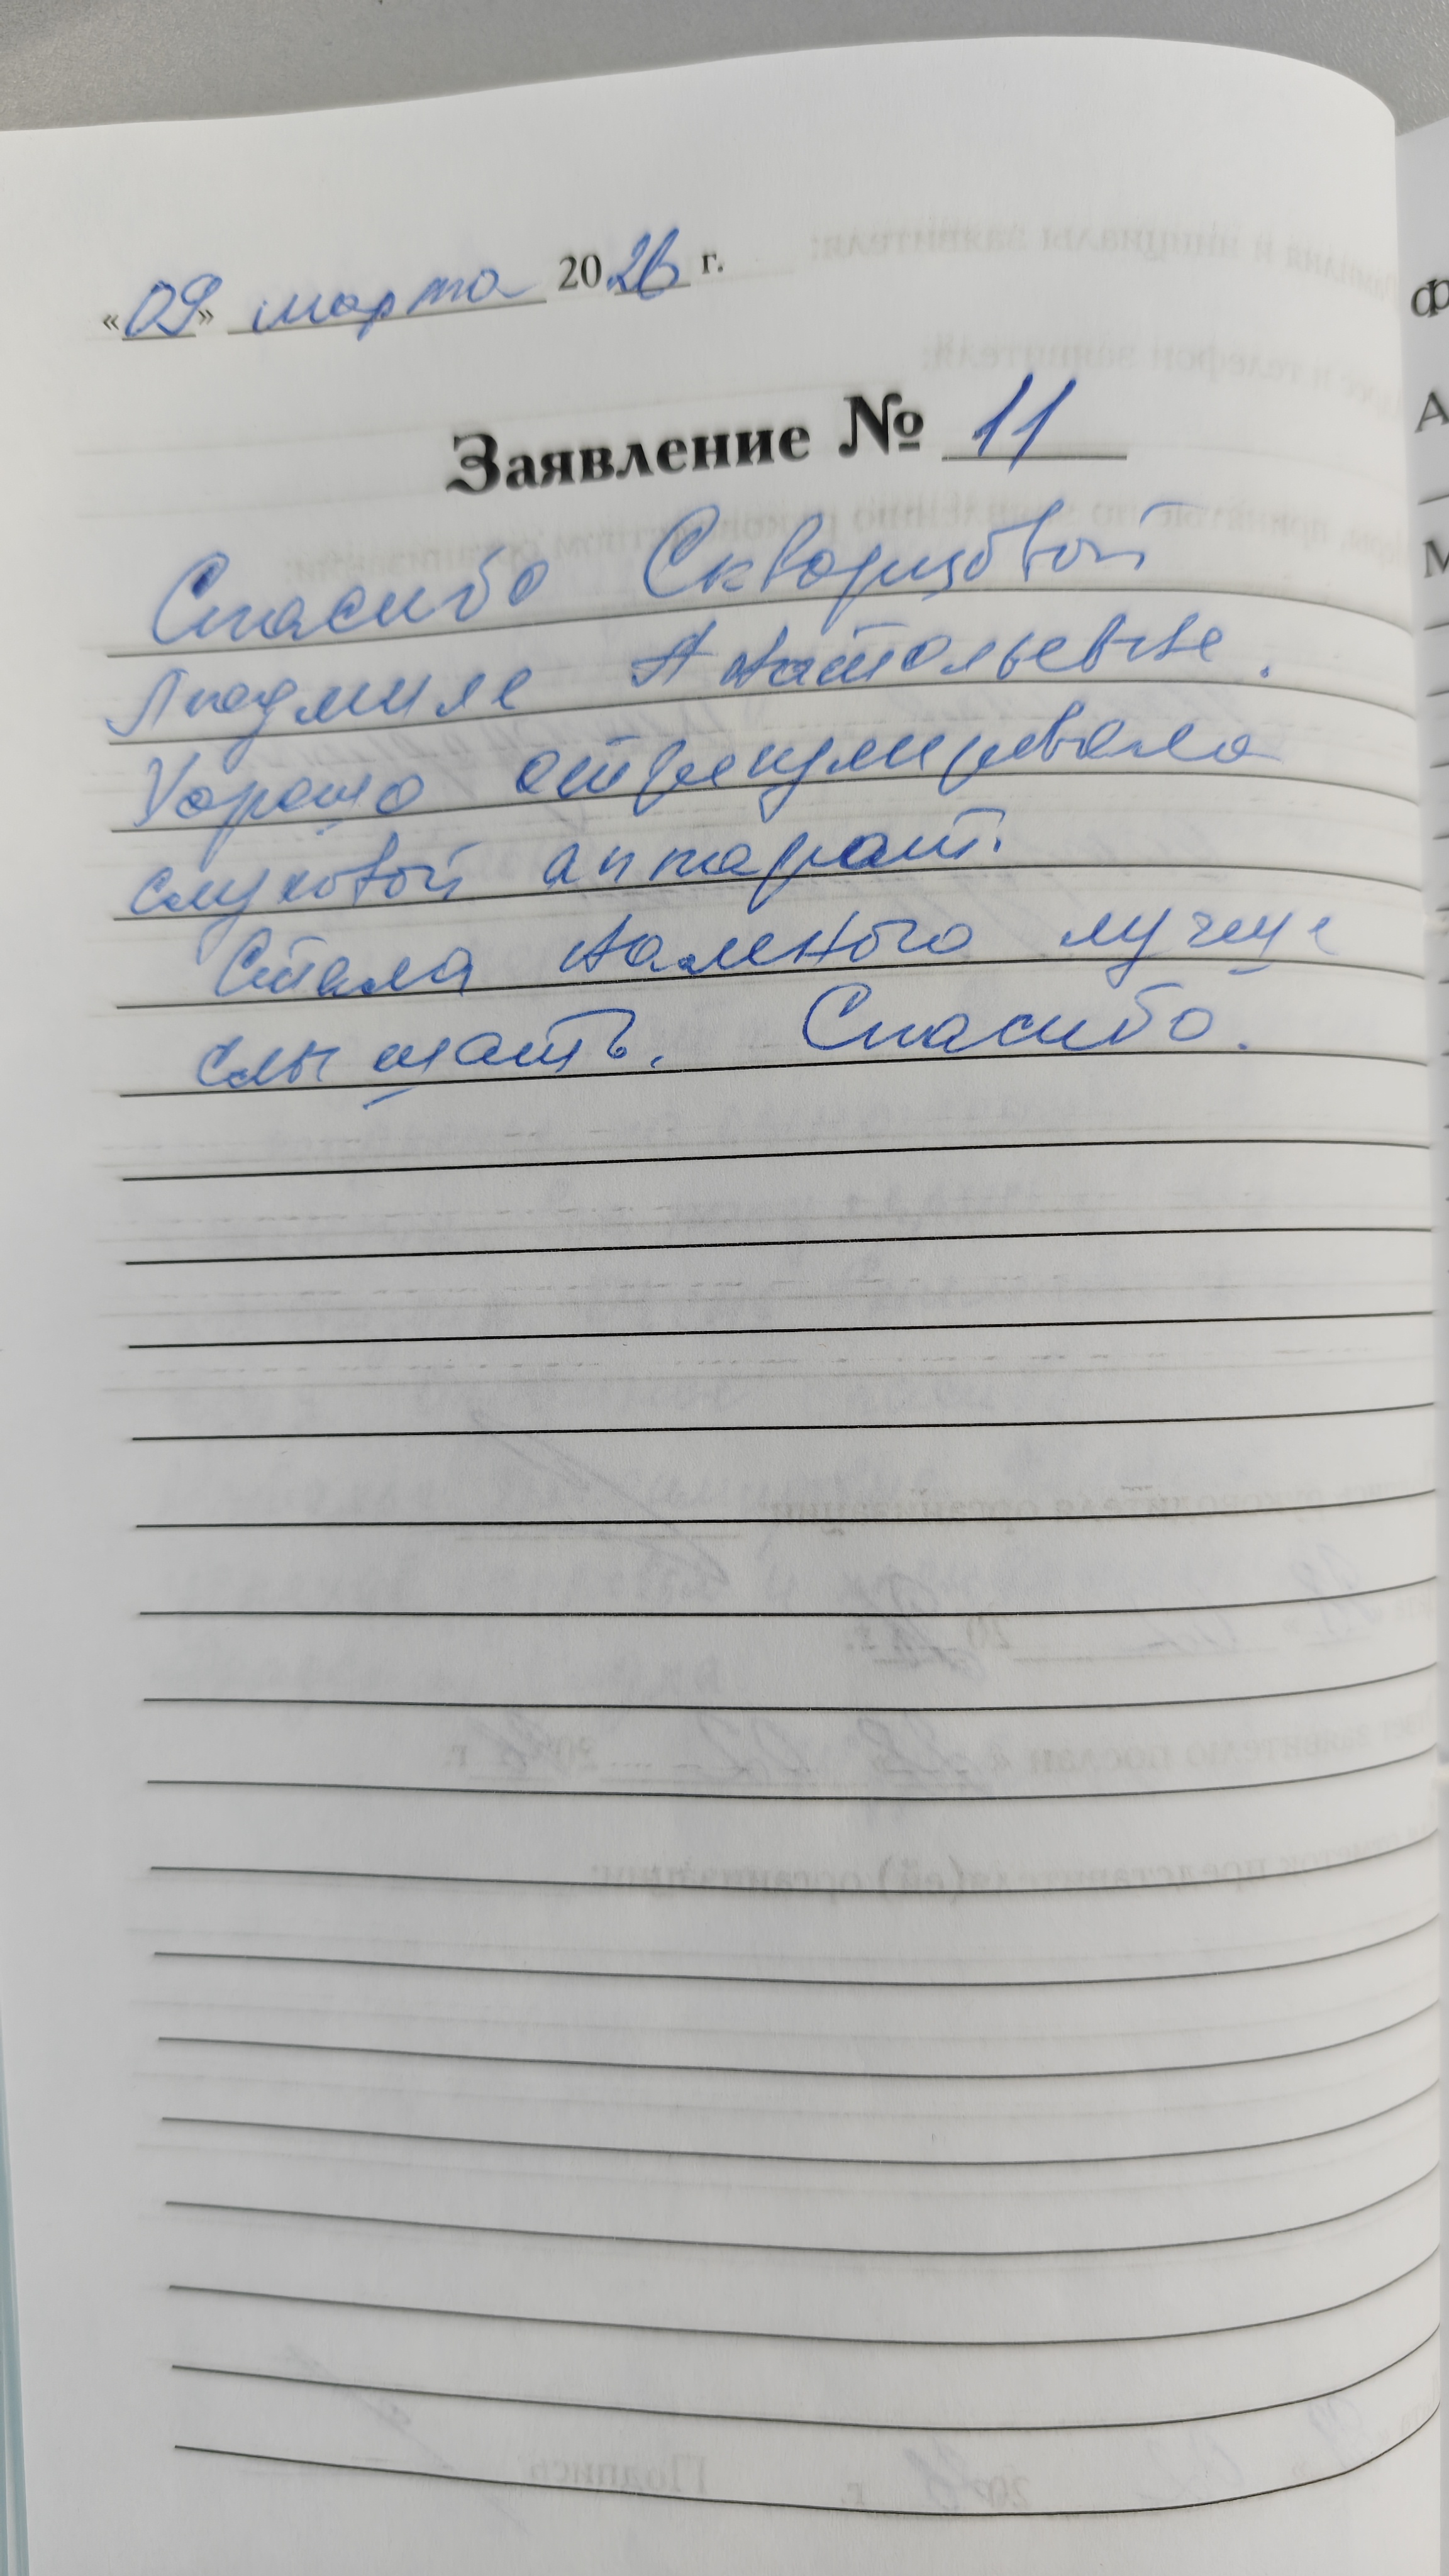 «09» марта 2026 г.
Заявление № 11
Спасибо Скворцовой
Людмиле Анатольевне.
Хорошо отрегулировала
слуховой аппарат.
Стала намного лучше
слышать. Спасибо.